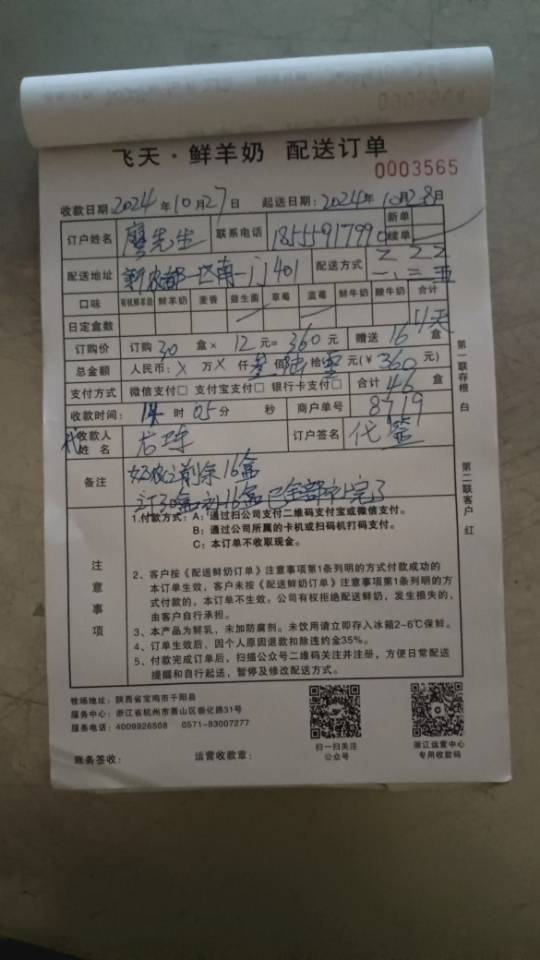 飞天·鲜羊奶 配送订单
0003565
收款日期:2024年10月27日 起送日期:2024年10月28日
订户姓名 廖先生 联系电话 18555917990 新单 续单
配送地址 南一门401 配送方式
口味 有机鲜羊奶 鲜羊奶 麦香 益生菌 草莓 蓝莓 鲜牛奶 酸牛奶 合计
日定盒数
订购价 订购30盒×12元=360元 赠送16盒
总金额 人民币:X万X仟叁佰陆拾零(¥360元)
支付方式 微信支付□ 支付宝支付□ 银行卡支付□ 合计46盒
收款时间: 时05分 秒 商户单号 8719
代收款人姓名 订户签名 代签
备注 剩余16盒
订30盒 16盒已全部 完了
注意事项
1.付款方式:A:通过扫公司支付二维码支付宝或微信支付。
B:通过公司所属的卡机或扫码机打码支付。
C:本订单不收取现金。
2、客户按《配送鲜奶订单》注意事项第1条列明的方式付款成功的
本订单生效,客户未按《配送鲜奶订单》注意事项第1条列明的方
式付款的,本订单不生效。公司有权拒绝配送鲜奶,发生损失的,
由客户自行承担。
3、本产品为鲜乳,未加防腐剂。未饮用请立即存入冰箱2-6℃保鲜。
4、订单生效后,因个人原因退款扣除违约金35%。
5、付款完成订单后,扫描公众号二维码关注并注册,方便日常配送
提醒和自行起送,暂停及修改配送方式。
第一联存根 白
第二联客户 红
牧场地址:陕西省宝鸡市千阳县
服务中心:浙江省杭州市萧山区崇化路31号
服务电话:4009926508 0571-83007277
扫一扫关注
公众号
浙江运营中心
专用收款码
账务签收: 运营收款章: